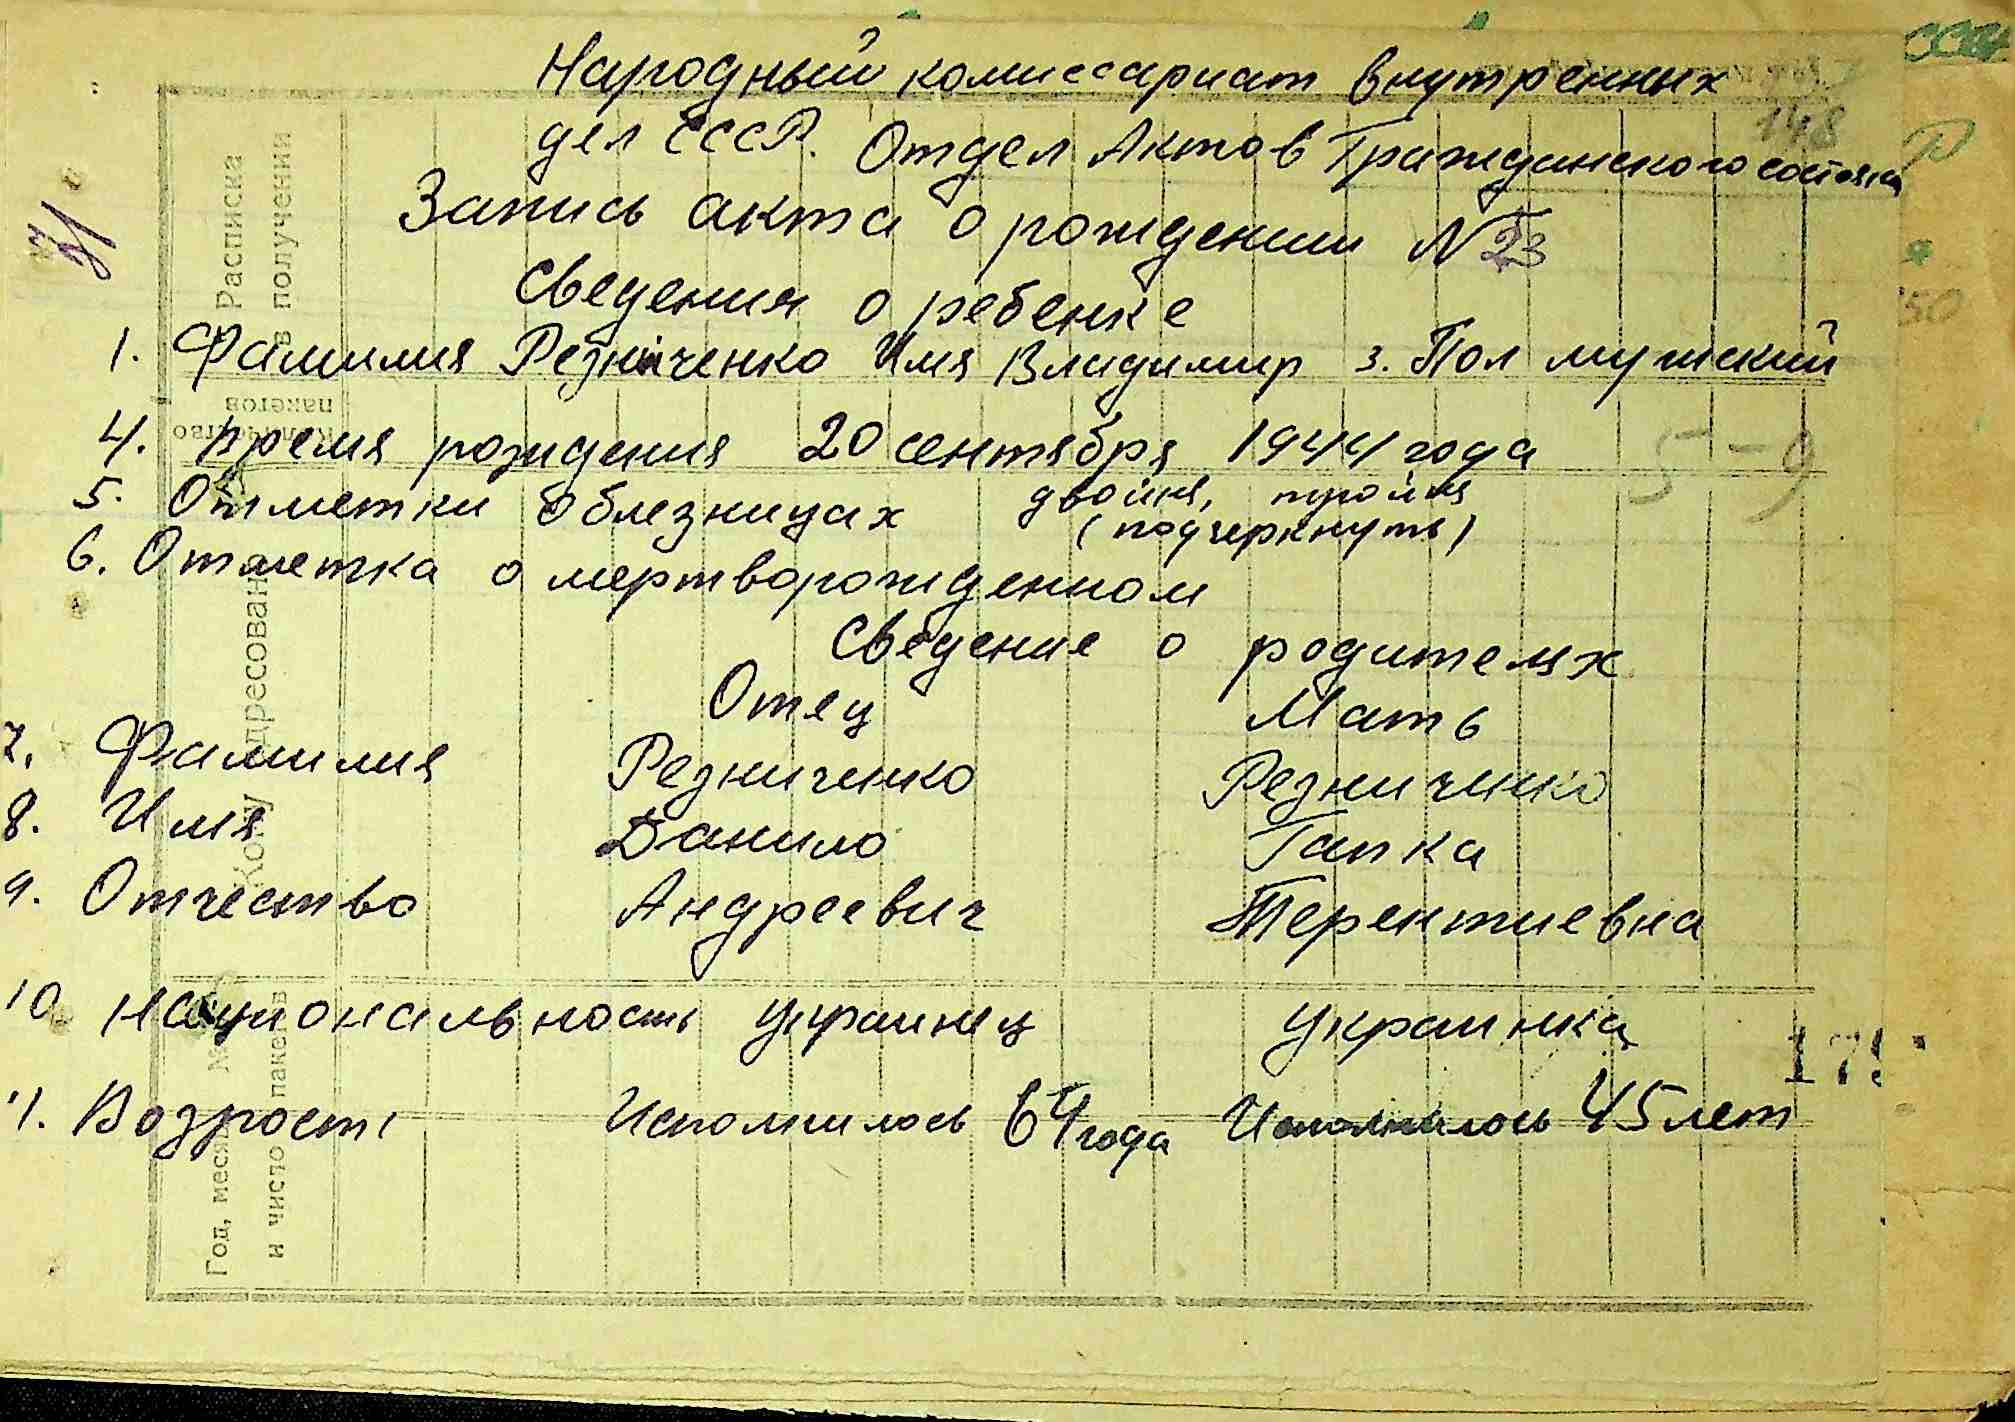 Народный комиссариат внутренных
148
дел СССР. Отдел Актов Гражданского состояния
Запись акта о рождении N 23
Сведения о ребенке
1. Фамилия Резниченко Имя Владимир 3. Пол мужский
4. время рождения 20 сентября 1944 года
5-9
5. Отметки о близницах двойня, тройня
(подчеркнуть)
6. Отметка о мертворожденном
Сведение о родителях
Отец Мать
7. Фамилия Резниченко Резниченко
8. Имя Данило Гапка
9. Отчество Андреевич Терентиевна
10 национальность украинец украинка
11. Возрост Исполнилось 64 года Исполнилось 45 лет
Расписка
в получении
Количество
пакетов
Кому адресовано
и число пакетов
Год, меся